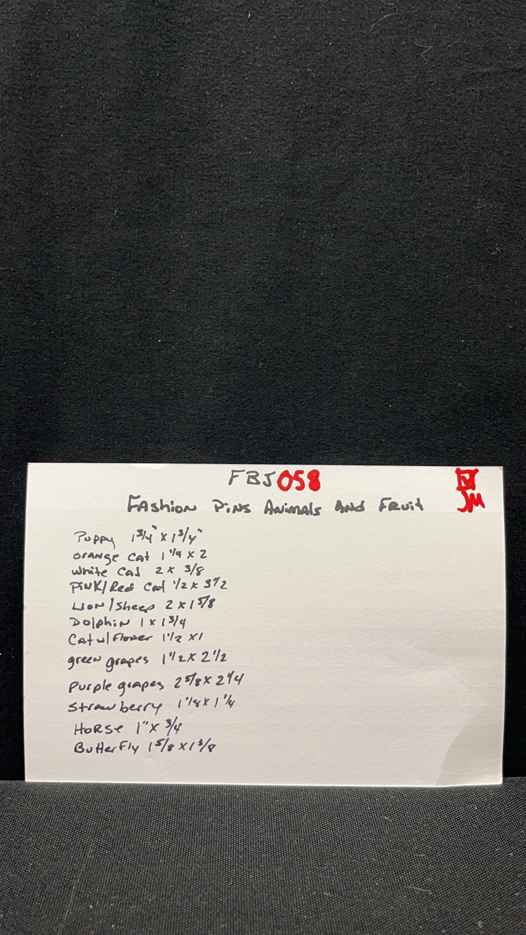 FBJ 058
JM
Fashion Pins Animals and Fruit
Puppy 1 3/4" x 1 3/4"
orange cat 1 1/4 x 2
white Cat 2 x 3/8
Pink/Red Cat 1/2 x
Lion/Sheep 2 x 1 5/8
Dolphin 1 x 1 3/4
Cat w/ Flower 1 1/2 x 1
green grapes 1 1/2 x 2 1/2
Purple grapes 2 5/8 x 2 1/4
Strawberry 1 1/8 x 1 1/4
Horse 1" x 3/4
Butterfly 1 5/8 x 1 3/8